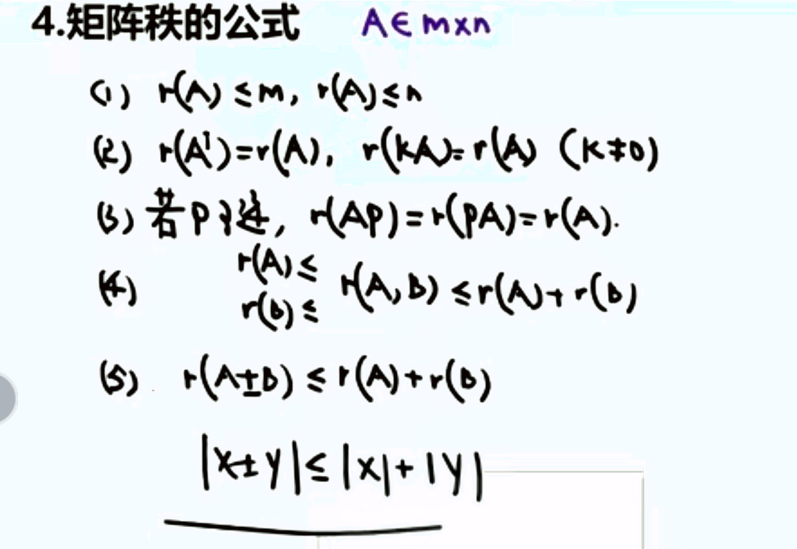 4.矩阵秩的公式 A∈m×n
(1) r(A)≤m, r(A)≤n
(2) r(Aᵀ)=r(A), r(kA)=r(A) (k≠0)
(3) 若P可逆, r(AP)=r(PA)=r(A).
(4) r(A)≤ r(A,B)≤r(A)+r(B)
r(B)≤
(5) r(A±B)≤r(A)+r(B)
|x±y|≤|x|+|y|